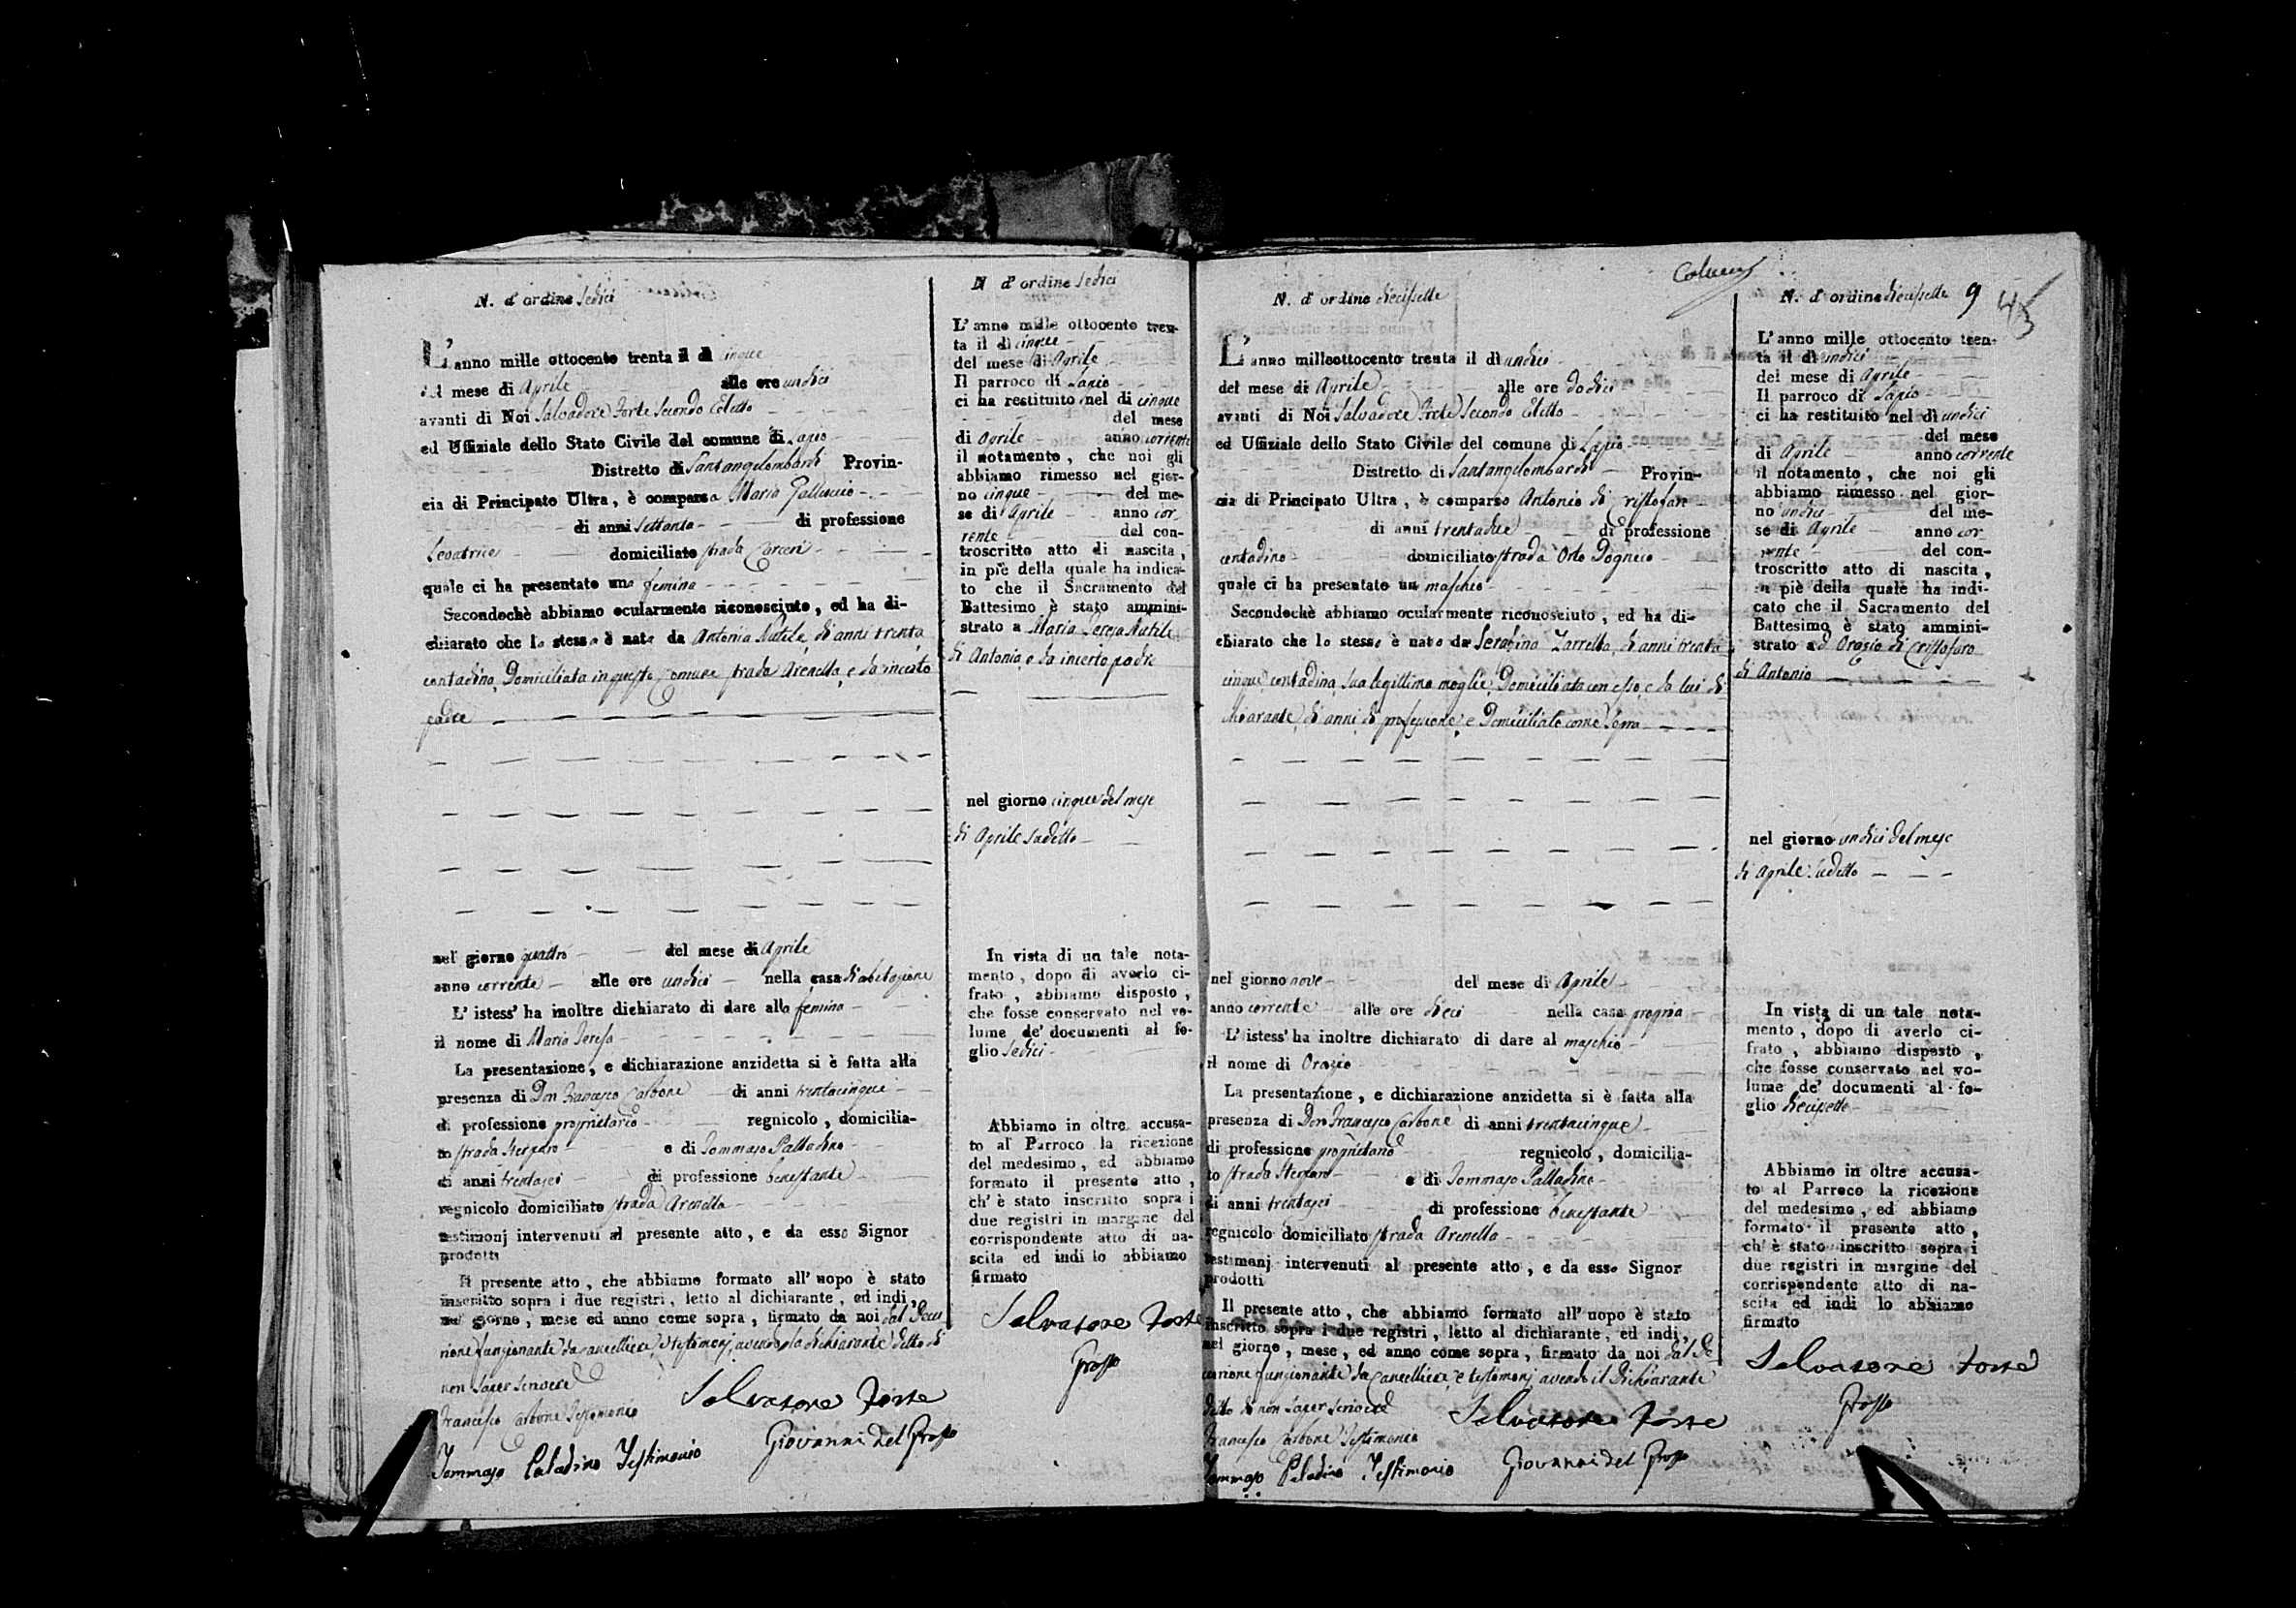 N. d' ordine Sedici
L' anno mille ottocento trenta il dì cinque
del mese di Aprile alle ore undici
avanti di Noi Salvadore Forte Secondo Eletto
ed Uffiziale dello Stato Civile del comune di Lapio
Distretto di Santangelombardi Provin-
cia di Principato Ultra, è comparsa Maria Galluccio
di anni Settanta di professione
Levatrice domiciliato strada Carceri
quale ci ha presentato una femina
Secondochè abbiamo ocularmente riconosciuto, ed ha di-
chiarato che la stessa è nata da Antonia Nutile, di anni trenta
contadina, Domiciliata in questo Comune strada Arenella, e da incerto
padre
nel giorno quattro del mese di Aprile
anno corrente alle ore undici nella casa di abitazione
L' istess' ha inoltre dichiarato di dare alla femina
il nome di Maria Teresa
La presentazione, e dichiarazione anzidetta si è fatta alla
presenza di Don Francesco Carbone di anni trentacinque
di professione proprietario regnicolo, domicilia-
to strada e di Tommaso Palladino
di anni trentasei di professione benestante
regnicolo domiciliato strada Arenella
testimonj intervenuti al presente atto, e da esso Signor
prodotti
Il presente atto, che abbiamo formato all' uopo è stato
inscritto sopra i due registri, letto al dichiarante, ed indi,
nel giorno, mese ed anno come sopra, firmato da noi dal Decu
rione funzionante da Cancelliere, e testimonj, avendo la dichiarante detto di
non saper scrivere
Salvatore Forte
Francesco Carbone Testimonio
Giovanni Del Grosso
Tommaso Paladino Testimonio
N d' ordine Sedici
L' anno mille ottocento tren-
ta il dì cinque
del mese di Aprile
Il parroco di Lapio
ci ha restituito nel dì cinque
del mese
di Aprile anno corrente
il notamento, che noi gli
abbiamo rimesso nel gior-
no cinque del me-
se di Aprile anno cor
rente del con-
troscritto atto di nascita,
in piè della quale ha indica-
to che il Sacramento del
Battesimo è stato ammini-
strato a Maria Teresa Nutile
di Antonia, e da incerto padre
nel giorno cinque del mese
di Aprile sudetto
In vista di un tale nota-
mento, dopo di averlo ci-
frato, abbiamo disposto,
che fosse conservato nel vo-
lume de' documenti al fo-
glio Sedici
Abbiamo in oltre accusa-
to al Parroco la ricezione
del medesimo, ed abbiamo
formato il presente atto,
ch' è stato inscritto sopra i
due registri in margine del
corrispondente atto di na-
scita ed indi lo abbiamo
firmato
Salvatore Forte
Grosso
N. d' ordine diecisette
L' anno milleottocento trenta il dì undici
del mese di Aprile alle ore dodici
avanti di Noi Salvadore Forte Secondo Eletto
ed Uffiziale dello Stato Civile del comune di Lapio
Distretto di Santangelombardi Provin-
cia di Principato Ultra, è comparso Antonio di Cristofaro
di anni trentadue di professione
contadino domiciliato strada Orto
quale ci ha presentato un maschio
Secondochè abbiamo ocularmente riconosciuto, ed ha di-
chiarato che lo stesso è nato da Serafina Zarrella, di anni trenta
cinque, contadina, sua legittima moglie, Domiciliata con esso, e da lui di
chiarante, di anni, di professione, e Domiciliato come sopra
nel giorno nove del mese di Aprile
anno corrente alle ore dieci nella casa propria
L' istess' ha inoltre dichiarato di dare al maschio
il nome di Orazio
La presentazione, e dichiarazione anzidetta si è fatta alla
presenza di Don Francesco Carbone di anni trentacinque
di professione proprietario regnicolo, domicilia-
to strada e di Tommaso Palladino
di anni trentasei di professione benestante
regnicolo domiciliato strada Arenella
testimonj intervenuti al presente atto, e da esso Signor
prodotti
Il presente atto, che abbiamo formato all' uopo è stato
inscritto sopra i due registri, letto al dichiarante, ed indi,
nel giorno, mese, ed anno come sopra, firmato da noi dal De
curione funzionante da Cancelliere, e testimonj, avendo il dichiarante
detto di non saper scrivere
Salvatore Forte
Francesco Carbone Testimonio
Giovanni Del Grosso
Tommaso Paladino Testimonio
N. d' ordine diecisette 9
L' anno mille ottocento tren-
ta il dì undici
del mese di Aprile
Il parroco di Lapio
ci ha restituito nel dì undici
del mese
di Aprile anno corrente
il notamento, che noi gli
abbiamo rimesso nel gior-
no undici del me-
se di Aprile anno cor
rente del con-
troscritto atto di nascita,
in piè della quale ha indi-
cato che il Sacramento del
Battesimo è stato ammini-
strato ad Orazio di Cristofaro
di Antonio
nel giorno undici del mese
di Aprile sudetto
In vista di un tale nota-
mento, dopo di averlo ci-
frato, abbiamo disposto,
che fosse conservato nel vo-
lume de' documenti al fo-
glio diecisette
Abbiamo in oltre accusa-
to al Parroco la ricezione
del medesimo, ed abbiamo
formato il presente atto,
ch' è stato inscritto sopra i
due registri in margine del
corrispondente atto di na-
scita ed indi lo abbiamo
firmato
Salvatore Forte
Grosso